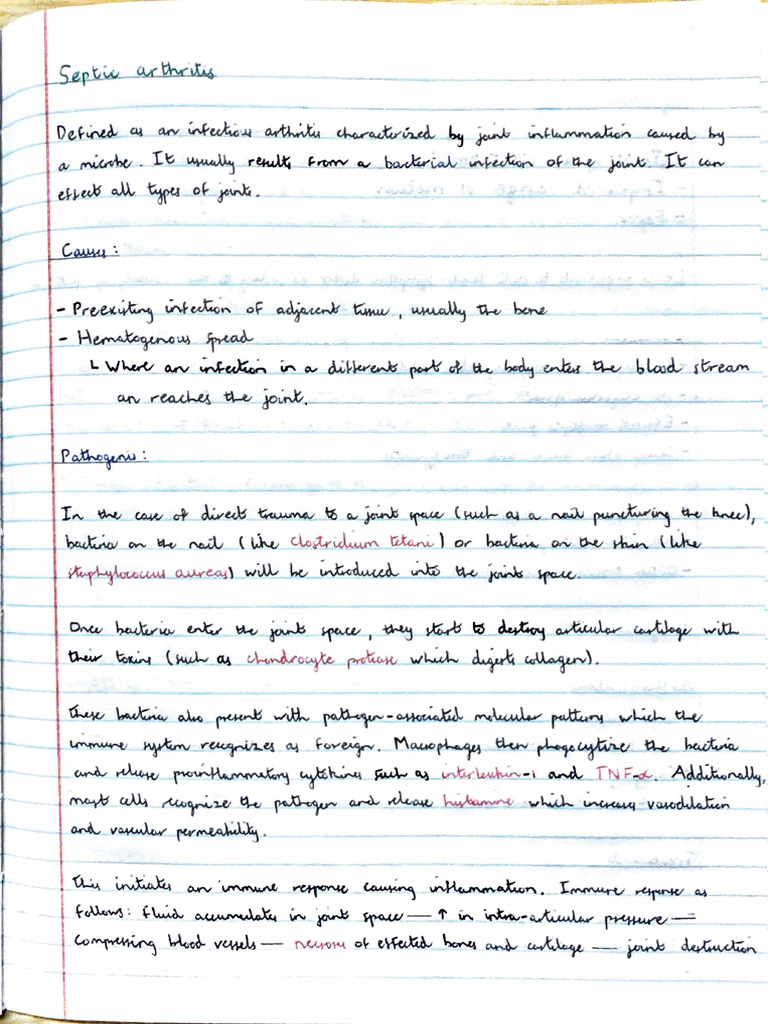 Septic arthritis
Defined as an infectious arthritis characterized by joint inflammation caused by
a microbe. It usually results from a bacterial infection of the joint. It can
effect all types of joints.
Causes:
- Preexisting infection of adjacent tissue, usually the bone
- Hematogenous spread
└ Where an infection in a different part of the body enters the blood stream
an reaches the joint.
Pathogenis:
In the case of direct trauma to a joint space (such as a nail puncturing the knee),
bacteria on the nail (like clostridium tetani) or bacteria on the skin (like
staphylococcus aureas) will be introduced into the joint space.
Once bacteria enter the joint space, they start to destroy articular cartilage with
their toxins (such as chondrocyte protease which digests collagen).
These bacteria also present with pathogen-associated molecular patterns which the
immune system recognizes as foreign. Macrophages then phagocytize the bacteria
and release proinflammatory cytokines such as interleukin-1 and TNF-α. Additionally,
mast cells recognize the pathogen and release histamine which increases vasodilation
and vascular permeability.
This initiates an immune response causing inflammation. Immune response as
follows: fluid accumulates in joint space — ↑ in intra-articular pressure —
compressing blood vessels — necrosis of effected bones and cartilage — joint destruction